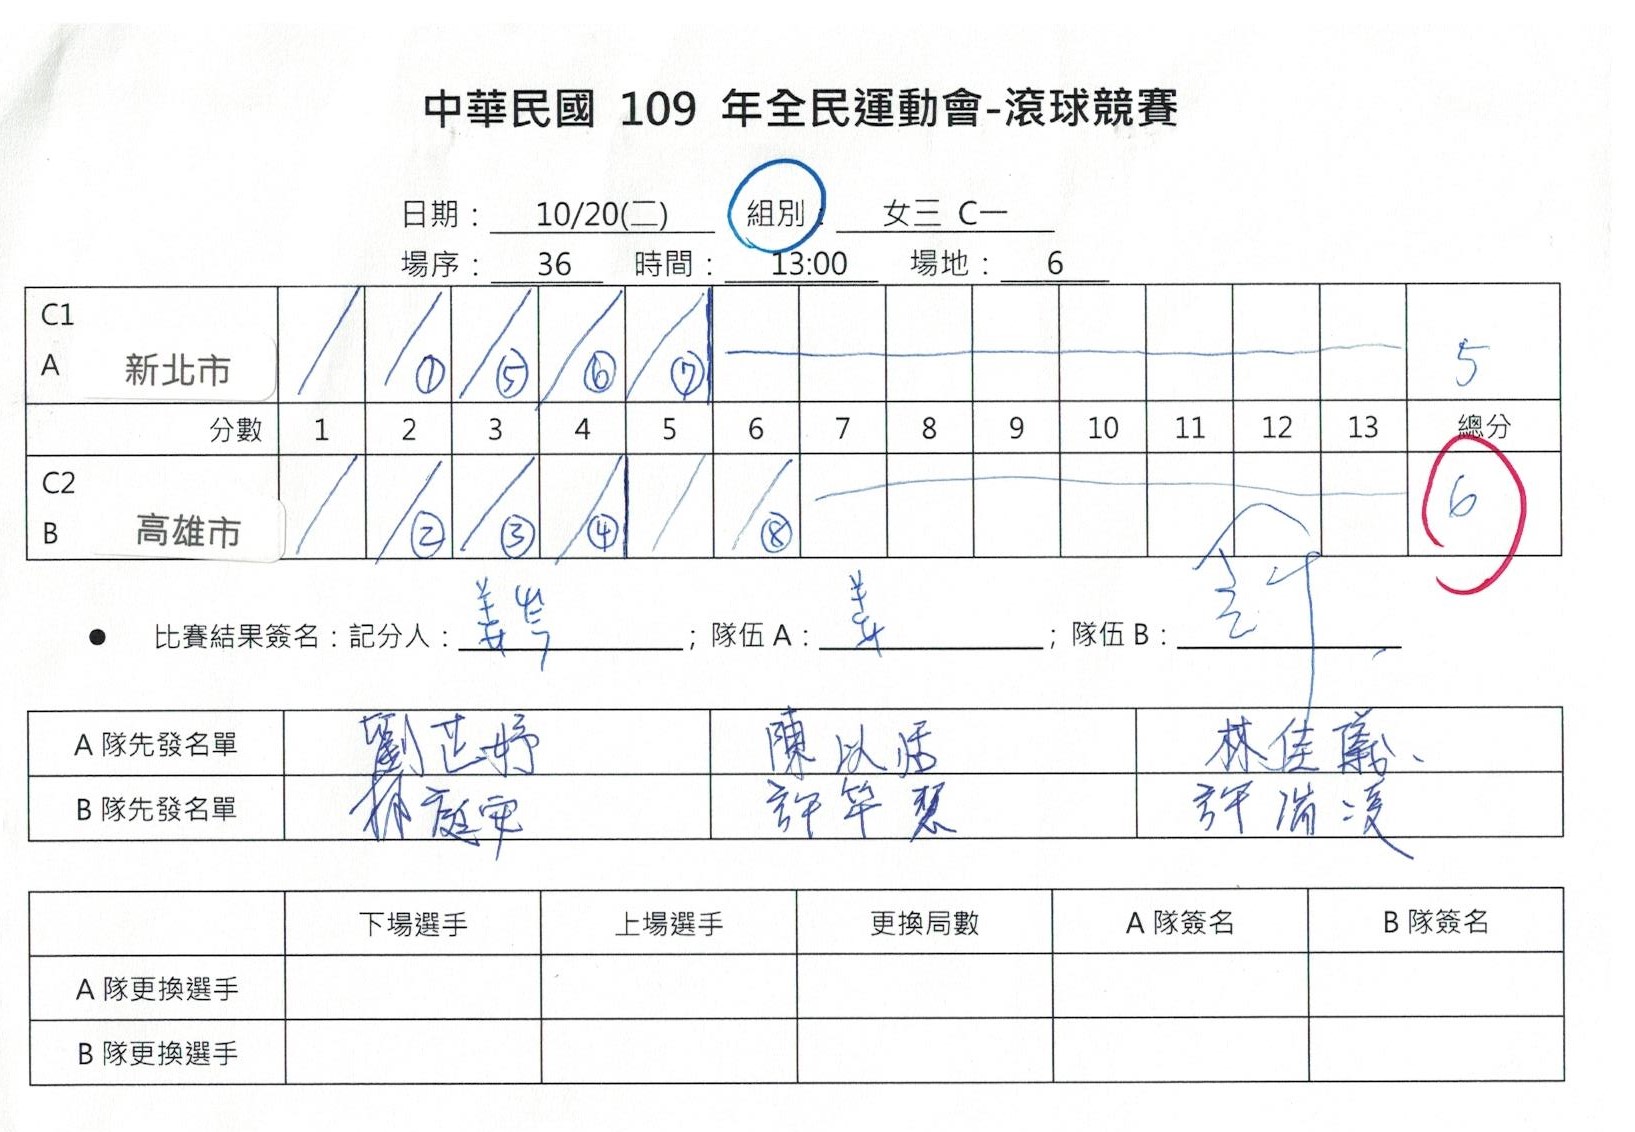 中華民國 109 年全民運動會-滾球競賽
日期： 10/20(二) 組別： 女三 C一
場序： 36 時間： 13:00 場地： 6
C1
A 新北市 ① ⑤ ⑥ ⑦ 5
分數 1 2 3 4 5 6 7 8 9 10 11 12 13 總分
C2
B 高雄市 ② ③ ④ ⑧ 6
● 比賽結果簽名：記分人： ；隊伍 A： ；隊伍 B：
A 隊先發名單 劉芷妤 陳以 林佳儀
B 隊先發名單 庭 許 許瑞凌
下場選手 上場選手 更換局數 A 隊簽名 B 隊簽名
A 隊更換選手
B 隊更換選手